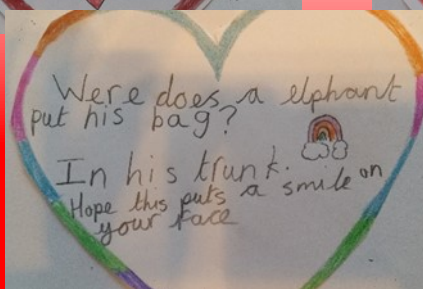 Were does a elphant
put his bag?
In his trunk.
Hope this puts a smile on
your face